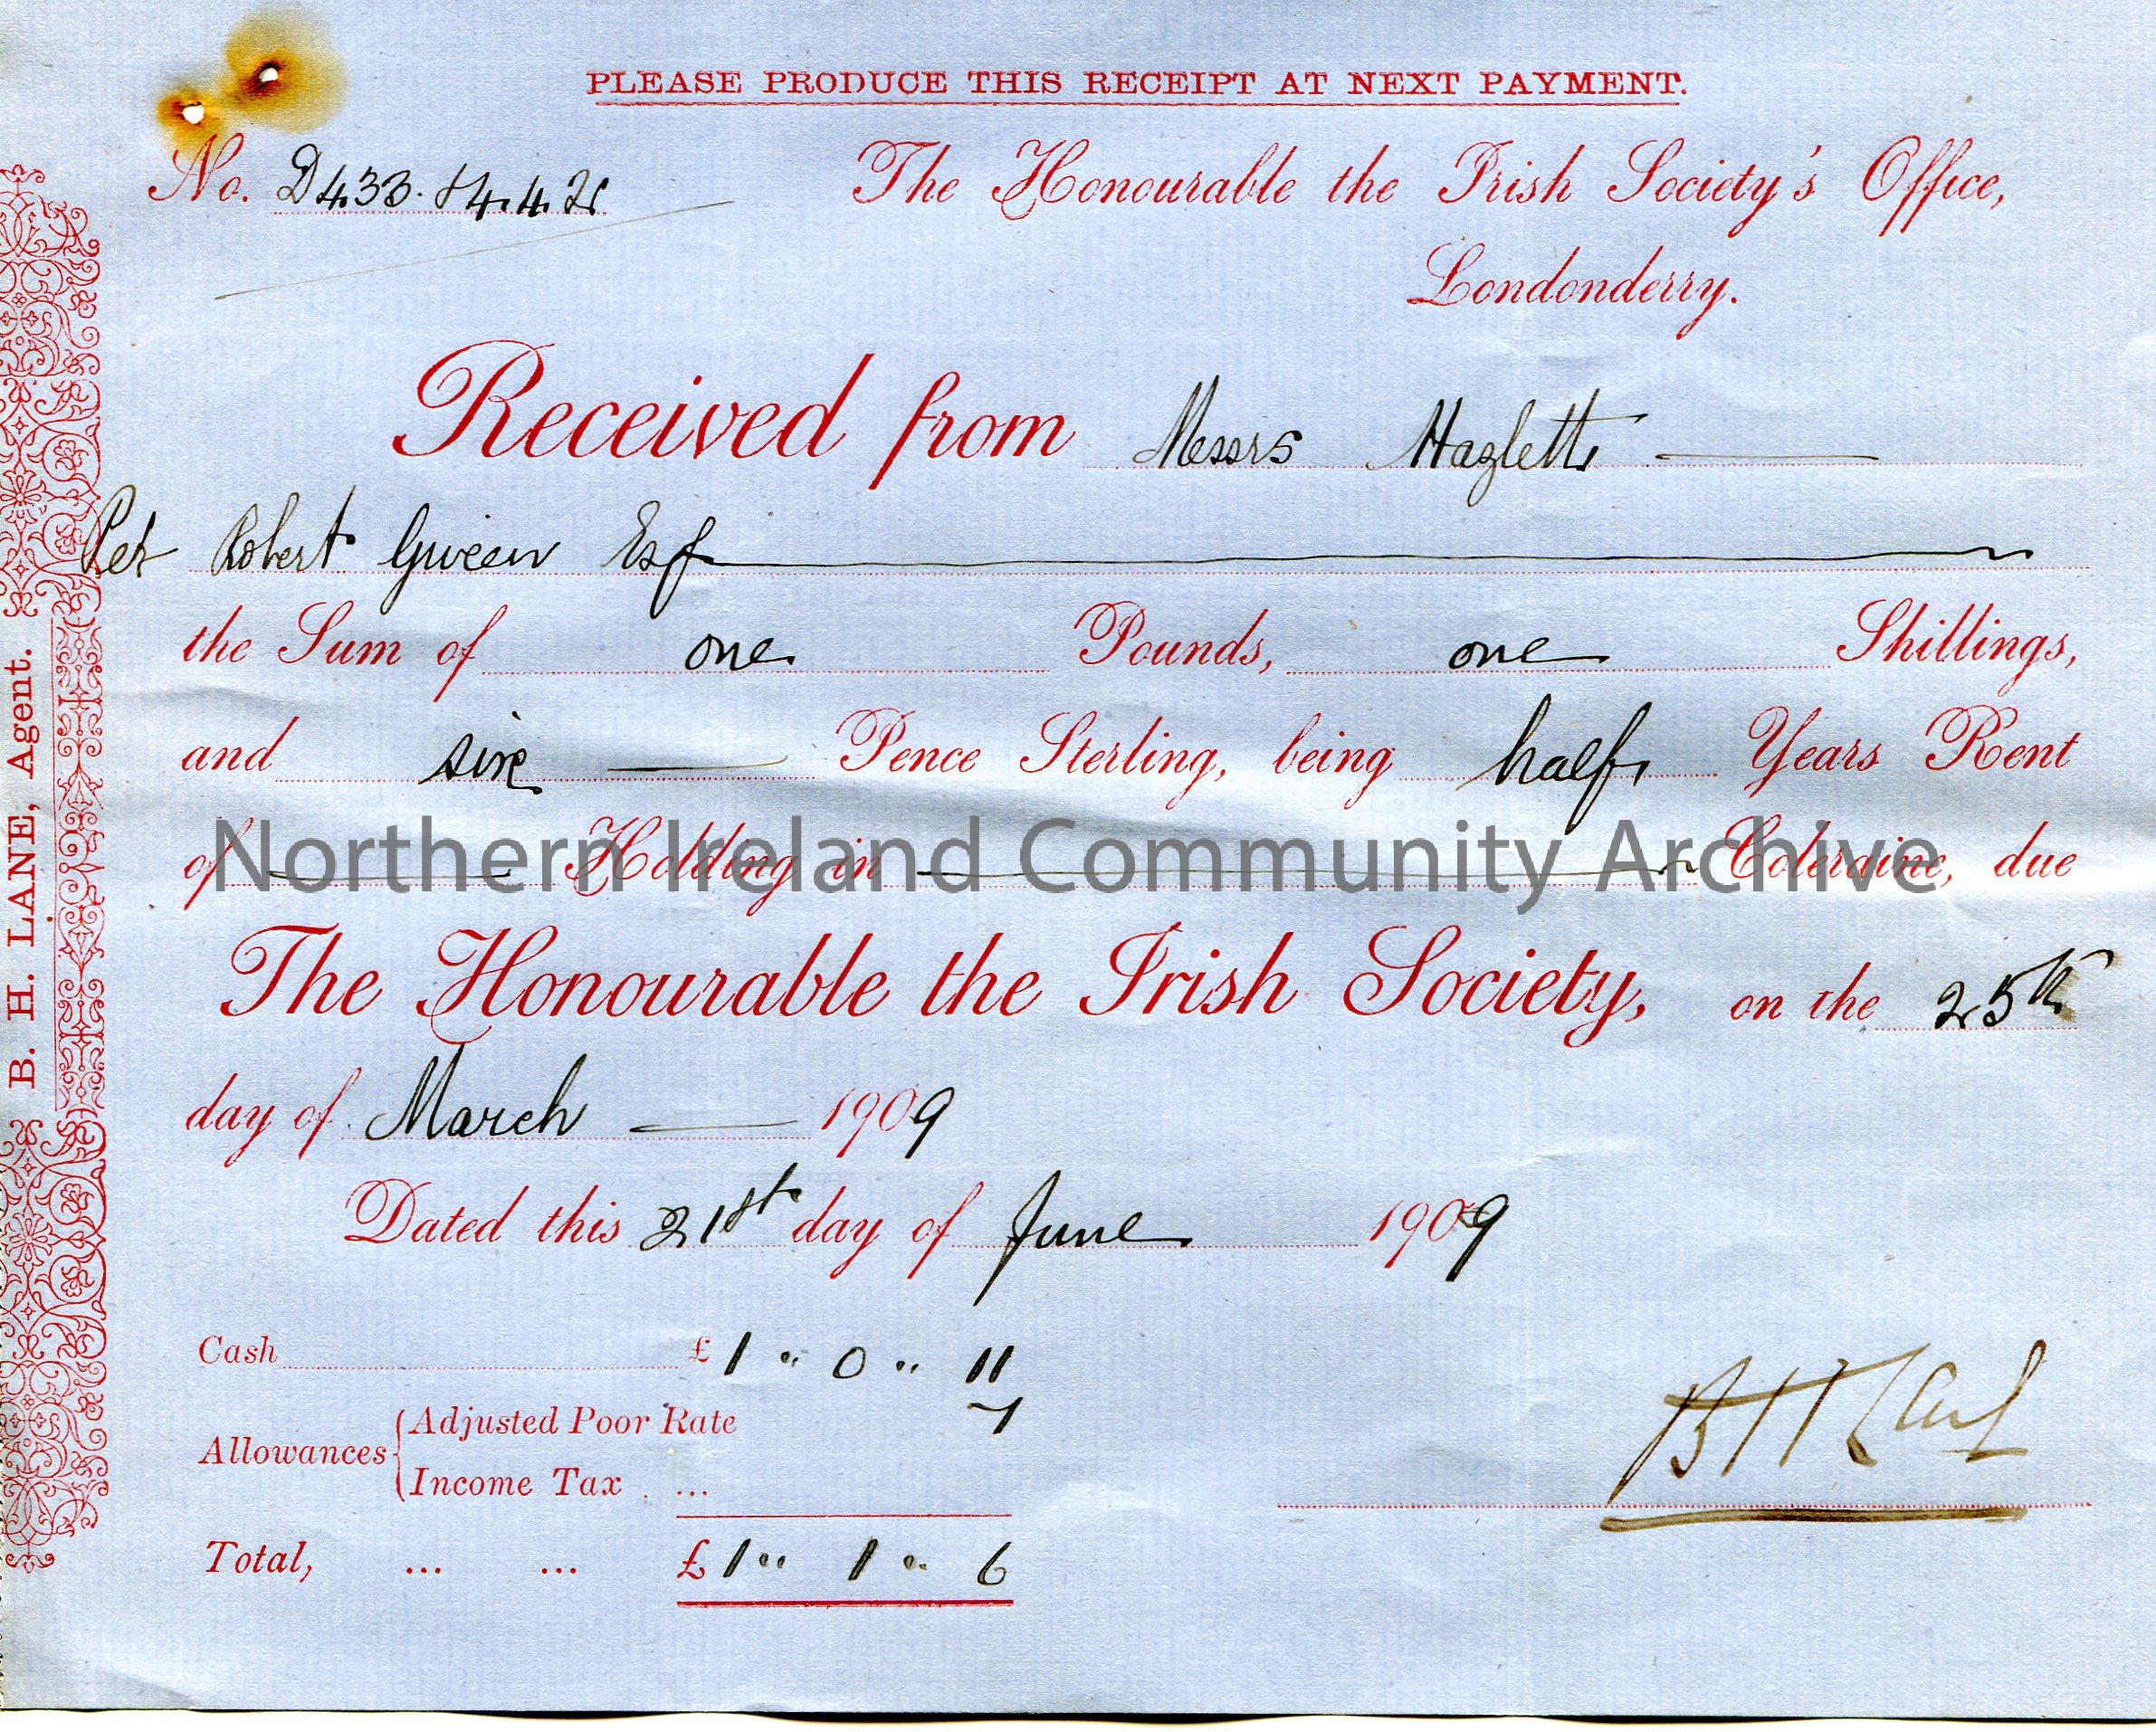 PLEASE PRODUCE THIS RECEIPT AT NEXT PAYMENT.
No. D433.
The Honourable the Irish Society's Office,
Londonderry.
Received from Messrs Hazletts
Per Robert Given Esq
the Sum of one Pounds, one Shillings,
and six Pence Sterling, being half Years Rent
of Holding in Coleraine, due
Northern Ireland Community Archive
The Honourable the Irish Society, on the 25th
day of March 1909
Dated this 21st day of June 1909
Cash £ 1 " 0 " 11
Allowances Adjusted Poor Rate 7
Income Tax ...
Total, ... ... £ 1 " 1 " 6
B H Lane
B. H. LANE, Agent.